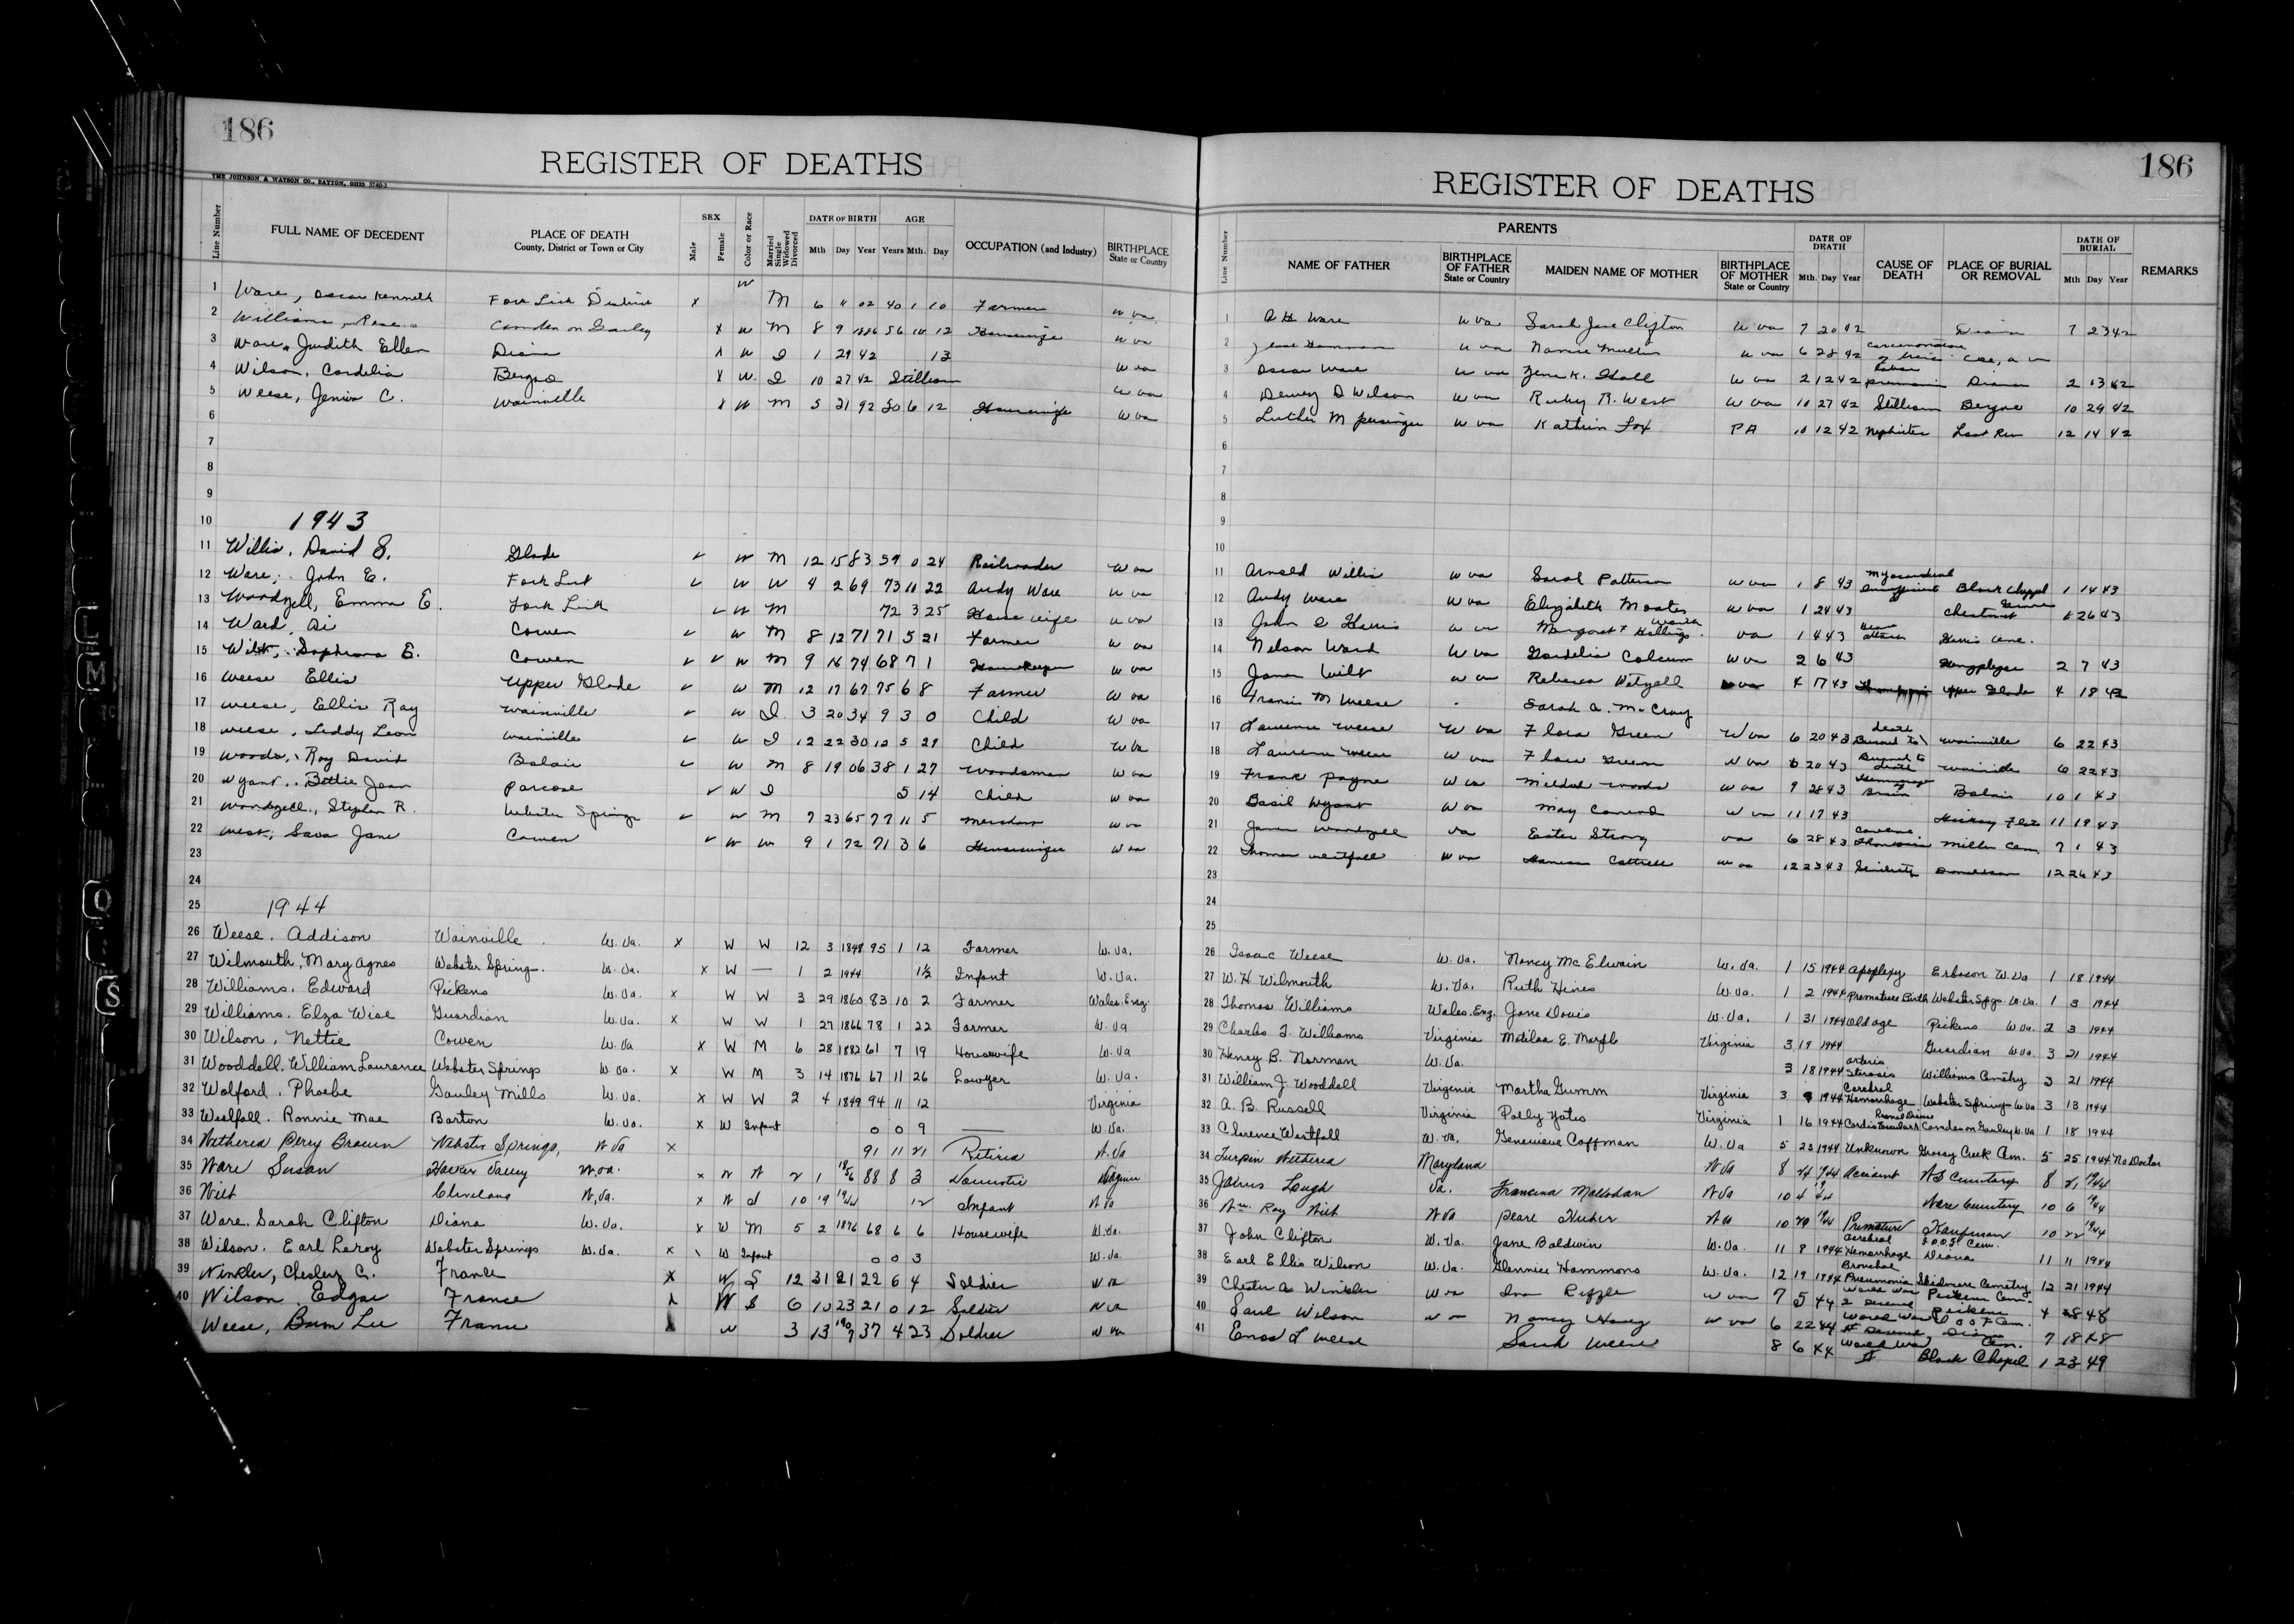 186
REGISTER OF DEATHS
THE JOHNSON & WATSON CO., DAYTON, OHIO
Line Number FULL NAME OF DECEDENT PLACE OF DEATH County, District or Town or City SEX Male Female Color or Race Married Single Widowed Divorced DATE OF BIRTH Mth Day Year AGE Years Mth. Day OCCUPATION (and Industry) BIRTHPLACE State or Country
1 Ware, Oscar Kenneth Fork Lick District x W M 6 02 40 1 10 Farmer W va
2 Williams, Camden on Gauley x W M 8 9 1886 56 10 12 Housewife W va
3 Ware, Judith Ellen Diana x W S 1 29 42 13 W va
4 Wilson, Cordelia Bergoo x W. S 10 27 42 Stillborn W va
5 Weese, C. Wainville x W M 5 31 92 50 6 12 Housewife W va
6
7
8
9
10 1943
11 Willis, David S. Glade ✓ W M 12 15 83 59 0 24 Railroader W va
12 Ware, John E. Fork Lick ✓ W W 4 2 69 73 22 Andy Ware W va
13 Woodzell, Emma E. Fork Lick ✓ W M 72 3 25 House wife W va
14 Ward, Cowen ✓ W M 8 12 71 71 5 21 Farmer W va
15 Wilt, Sophrona E. Cowen ✓ ✓ W M 9 16 74 68 7 1 Housekeeper W va
16 Weese Ellis Upper Glade ✓ W M 12 17 67 75 6 8 Farmer W va
17 Weese, Ellis Ray Wainville ✓ W S. 3 20 34 9 3 0 Child W va
18 Weese, Leddy Leon Wainville ✓ W S 12 22 30 12 5 29 Child W va
19 Woods, Roy David Bolair ✓ W M 8 19 06 38 1 27 Woodsman W va
20 Wyant, Bettie Jean Parcoal ✓ W S 5 14 Child W va
21 Woodzell, Stephen R. Webster Springs ✓ W M 7 23 65 77 11 5 W va
22 West, Sara Jane Cowen ✓ W W 9 1 72 71 3 6 Housewife W va
23
24
25 1944
26 Weese, Addison Wainville W. Va. x W W 12 3 1848 95 1 12 Farmer W. Va.
27 Wilmouth, Mary Agnes Webster Spring. W. Va. x W — 1 2 1944 1½ Infant W. Va.
28 Williams, Edward Pickens W. Va. x W W 3 29 1860 83 10 2 Farmer Wales, Eng.
29 Williams, Elza Wise Guardian W. Va. x W W 1 27 1866 78 1 22 Farmer W. Va
30 Wilson, Nettie Cowen W. Va x W M 6 28 1882 61 7 19 Housewife W. Va
31 Wooddell, William Laurence Webster Springs W. Va. x W M 3 14 1876 67 11 26 Lawyer W. Va.
32 Wolford, Phoebe Gauley Mills W. Va. x W W 2 4 1849 94 11 12 Virginia
33 Westfall, Ronnie Mae Barton W. Va. x W Infant 0 0 9 — W. Va.
34 Wetherea Percy Brown Webster Springs, W Va x 91 11 21 Retired W. Va
35 Ware Susan Hacker Valley W. Va. x W W 2 1 88 8 3 Domestic Virginia
36 Wilt Cleveland W. Va. x W S 10 19 12 Infant W Va
37 Ware, Sarah Clifton Diana W. Va. x W M 5 2 1876 68 6 6 Housewife W. Va.
38 Wilson, Earl Leroy Webster Springs W. Va. x W Infant 0 0 3 W. Va.
39 Winkler, Chesley C. France X W S 12 31 21 22 6 4 Soldier W Va
40 Wilson, Edgar France x W S 6 10 23 21 0 12 Soldier W Va
Weese, Lee France W 3 13 1907 37 4 23 Soldier W va
186
REGISTER OF DEATHS
Line Number PARENTS NAME OF FATHER BIRTHPLACE OF FATHER State or Country MAIDEN NAME OF MOTHER BIRTHPLACE OF MOTHER State or Country DATE OF DEATH Mth. Day Year CAUSE OF DEATH PLACE OF BURIAL OR REMOVAL DATE OF BURIAL Mth Day Year REMARKS
1 A H Ware W va Sarah Jane Clifton W va 7 20 42 Diana 7 23 42
2 W va W va 6 28 42
3 Oscar Ware W va Hall W va 2 12 42 Diana 2 13 42
4 Dewey D Wilson W va Ruby R. West W va 10 27 42 Stillborn Bergoo 10 29 42
5 Luther M W va Kathrin Fox PA 12 42 Nephritis 12 14 42
6
7
8
9
10
11 Arnold Willis W va Sarah W va 1 8 43 Myocardial Black Chappel 1 14 43
12 Andy Ware W va Elizabeth Moates W va 1 24 43 Chestnut 26 43
13 John Harris W va Margaret va 1 4 43 attack Harris Cem.
14 Nelson Ward W va W va 2 6 43 2 7 43
15 James Wilt W va Rebecca W va 4 17 43 Upper Glade 4 18 43
16 Francis M Weese Sarah A. McCray
17 Laurence Weese W va Flora Green W va 6 20 43 Burned to death Wainville 6 22 43
18 Laurence Weese W va Flora Green W va 6 20 43 Burned to death Wainville 6 22 43
19 Frank Payne W va Mildred Woods W va 9 28 43 Brain Bolair 10 1 43
20 Basil Wyant W va May W va 11 17 43 11 19 43
21 James Woodzell va Ester Strong va 6 28 43 Miller Cem 7 1 43
22 Thomas Westfall W va Cottrell W va 12 23 43 Senility 12 26 43
23
24
25
26 Isaac Weese W. Va. Nancy Mc Elwain W. Va. 1 15 1944 Apoplexy Erbacon W. Va 1 18 1944
27 W. H Wilmouth W. Va. Ruth Hines W. Va. 1 2 1944 Premature Birth Webster Spgs. W. Va. 1 3 1944
28 Thomas Williams Wales, Eng. Jane Davis W. Va. 1 31 1944 Old age Pickens W. Va. 2 3 1944
29 Charles F. Williams Virginia Matilda E. Virginia 3 19 1944 Guardian W. Va. 3 21 1944
30 Henry B. Norman W. Va. 3 18 1944 Williams Cemetry 3 21 1944
31 William J. Wooddell Virginia Martha Gumm Virginia 3 1944 Cerebral Hemorrhage Webster Springs W. Va 3 13 1944
32 A. B. Russell Virginia Polly Yates Virginia 1 16 1944 Camden on Gauley W. Va 1 18 1944
33 Clarence Westfall W. Va. Genevieve Coffman W. Va 5 23 1944 Unknown Grassy Creek Cem. 5 25 1944 No Doctor
34 Turpin Wetherea Maryland W Va 8 24 1944 Accident WS Cemetery 8 1944
35 Lough Va. Francina W Va 10 4 44 Ware Cemetery 10 6 1944
36 Wm. Ray Wilt W Va Pearl Huber 10 1944 Premature Kaufman 10 22 1944
37 John Clifton W. Va. Jane Baldwin W. Va. 11 8 1944 Cerebral Hemorrhage Diana 11 11 1944
38 Earl Ellis Wilson W. Va. Glennice Hammons W. Va. 12 19 1944 Bronchal Pneumonia Skidmore Cemetry 12 21 1944
39 Chester A Winkler W va Iva Riffle W va 7 5 44 World War 2 Pickens Cem. 4 28 48
40 Paul Wilson Nancy W va 6 22 44 World War II Diana Cem. 7 18 48
41 Enos L Weese Sarah Weese 8 6 44 World War II Black Chapel 1 23 49